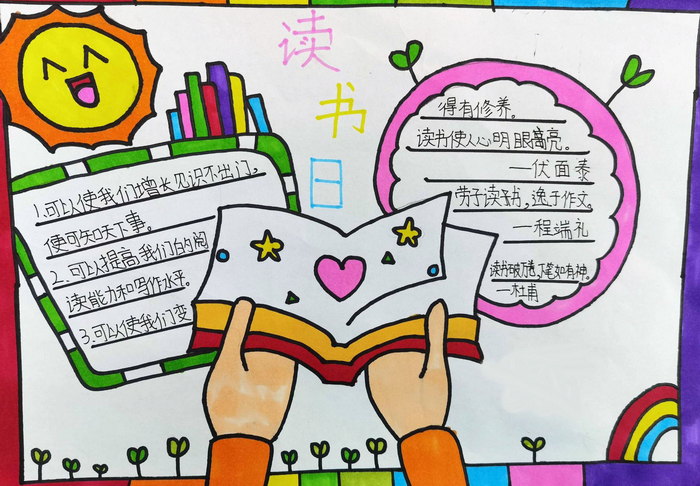 读书日
1.可以使我们增长见识不出门,
便可知天下事。
2.可以提高我们的阅
读能力和写作水平。
3.可以使我们变
得有修养。
读书使人心明眼高亮。
—伏面泰
劳于读书,逸于作文。
—程端礼
读书破万卷,下笔如有神。
—杜甫